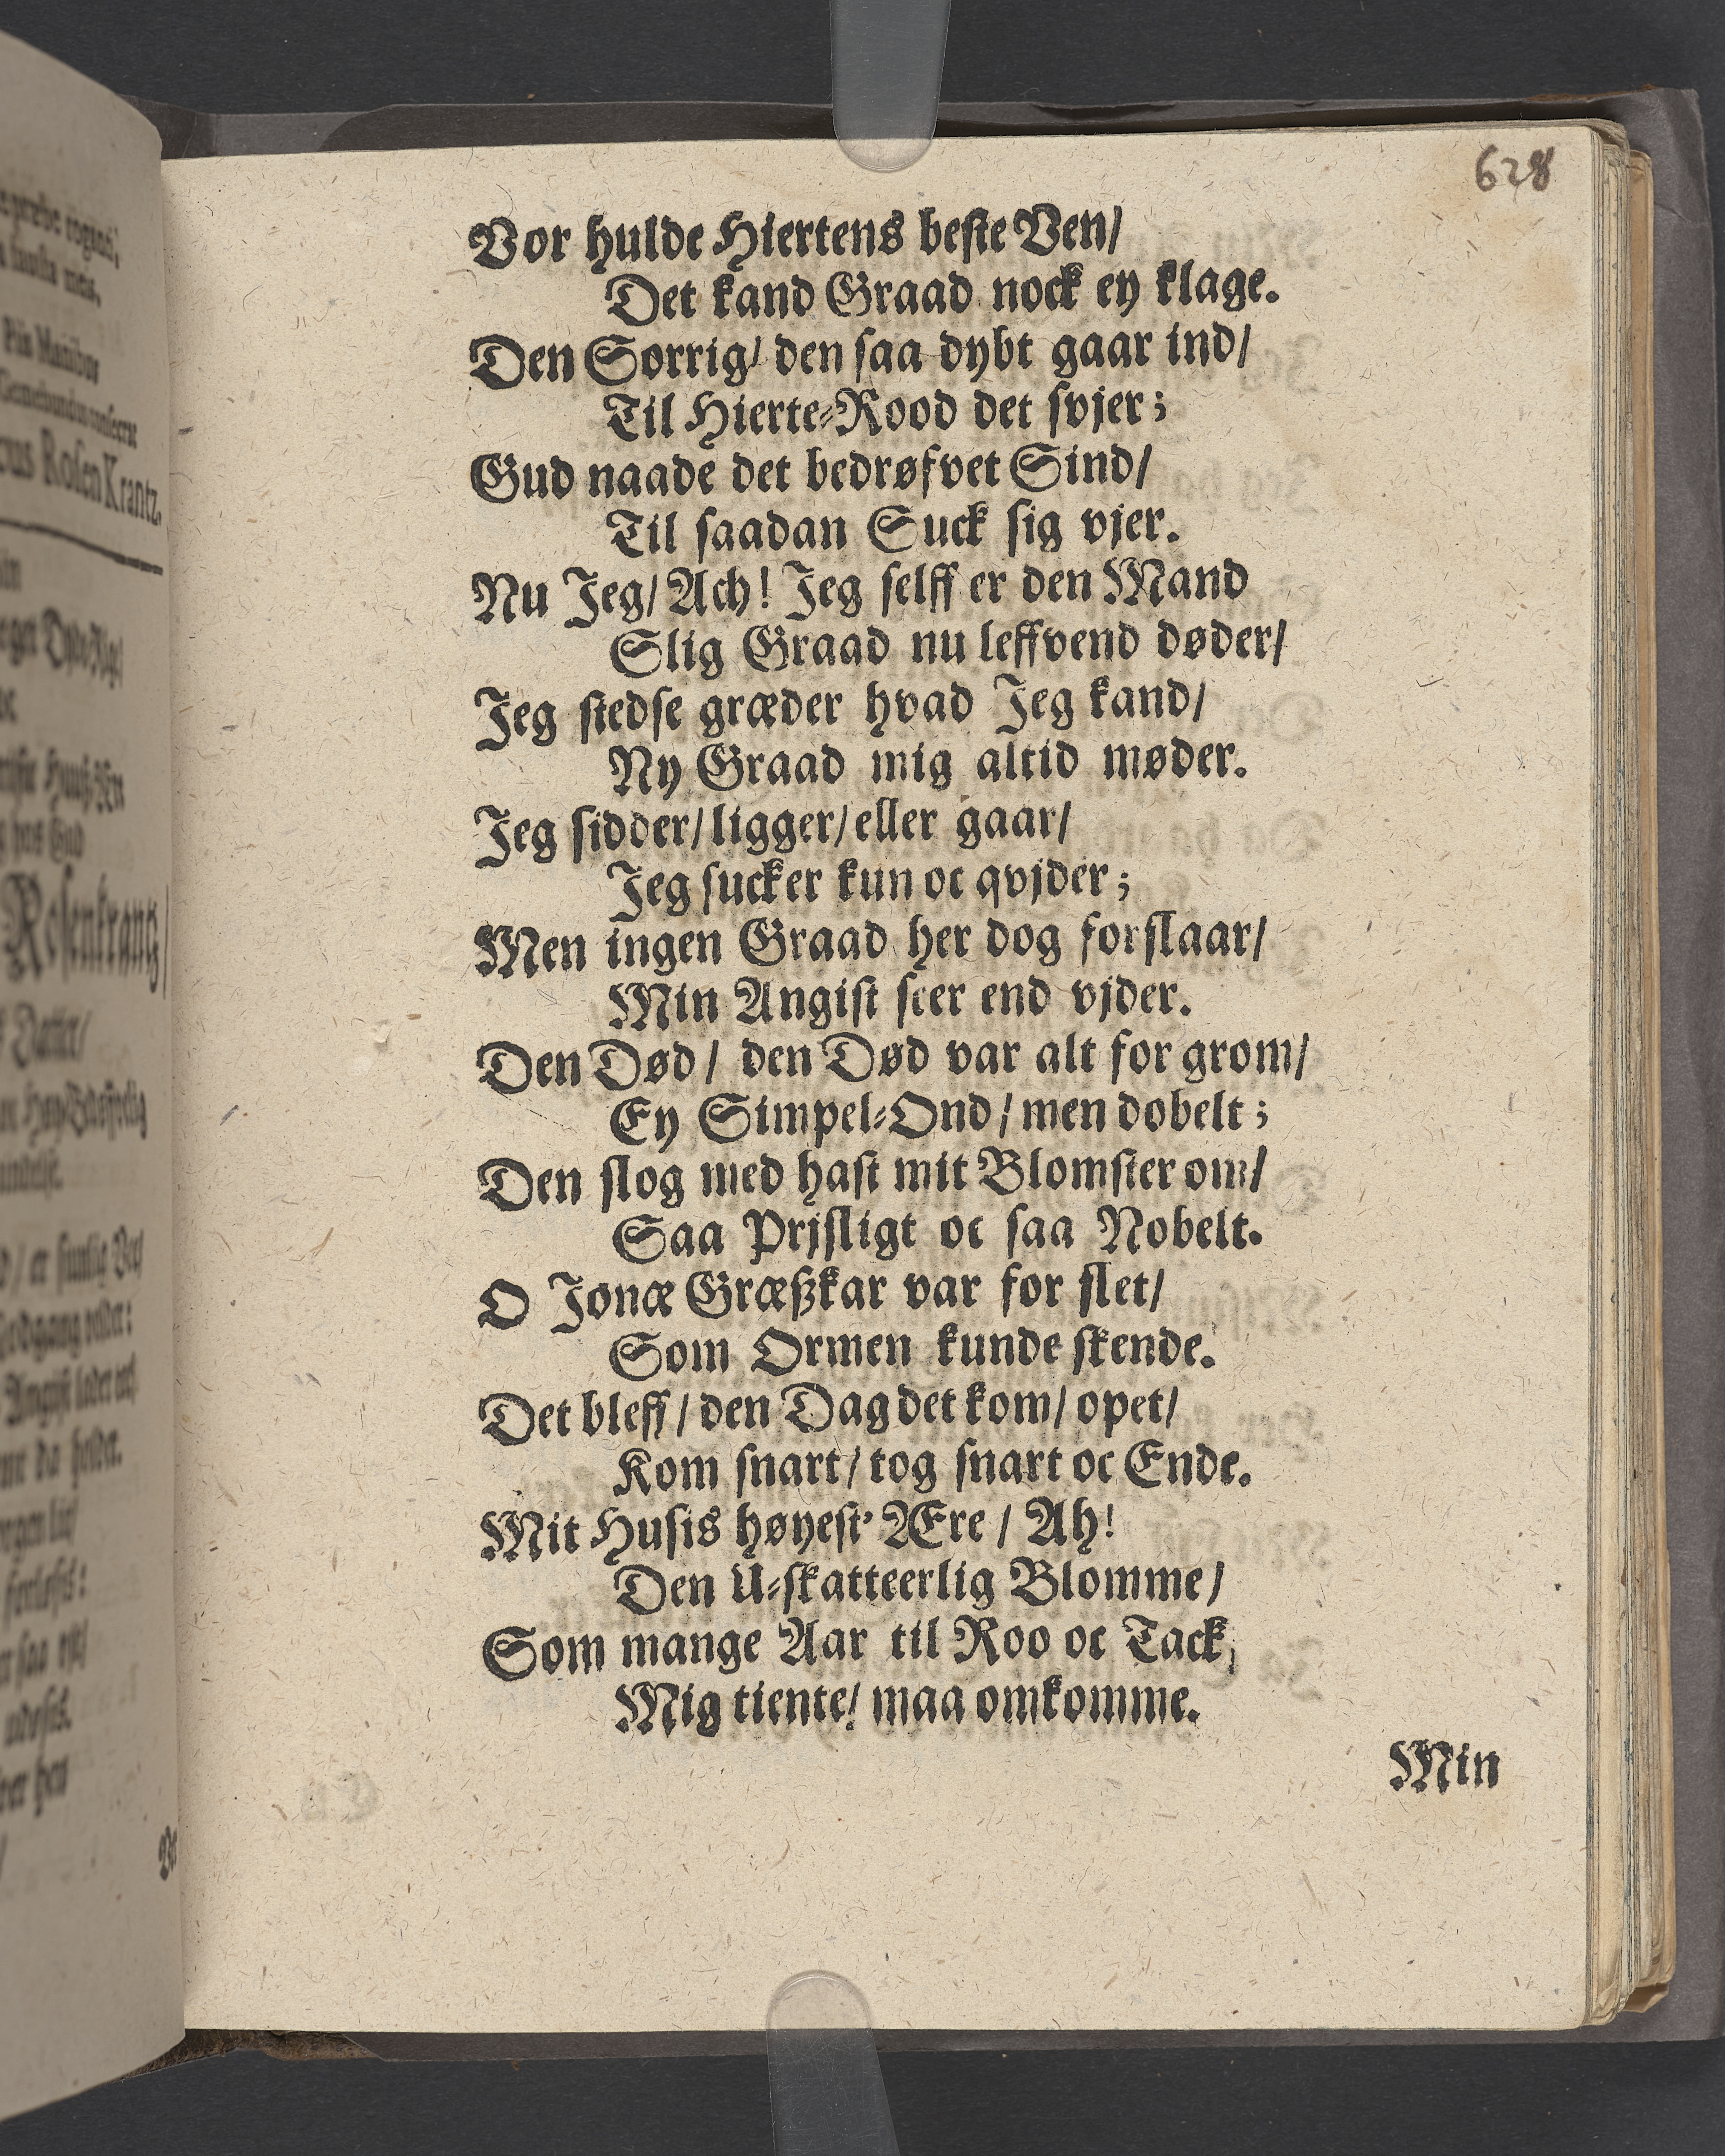 628
Vor hulde Hiertens beste Ven/
Det kand Graad nock ey klage.
Den Sorrig/ den saa dybt gaar ind/
Til Hierte-Rood det svjer;
Gud naade det bedrøfvet Sind/
Til saadan Suck sig vjer.
Nu Jeg/ Ach! Jeg selff er den Mand
Slig Graad nu leffvend døder/
Jeg stedse græder hvad Jeg kand/
Ny Graad mig altid møder.
Jeg sidder/ ligger/ eller gaar/
Jeg sucker kun oc qvjder;
Men ingen Graad her dog forslaar/
Min Angist seer end vjder.
Den Død/ den Død var alt for grom/
Ey Simpel-Ond/ men dobelt;
Den slog med hast mit Blomster om/
Saa Prjsligt oc saa Nobelt.
O Jonæ Græßkar var for slet/
Som Ormen kunde skende.
Det bleff/ den Dag det kom/ opet/
Kom snart/ tog snart oc Ende.
Mit Husis høyest' Ære/ Ah!
Den U-skatteerlig Blomme/
Som mange Aar til Roo oc Tack,
Mig tiente/ maa omkomme.
Min
Piis Manibus
cus Rosen Krantz,
Rosenkrantz/
Datter/